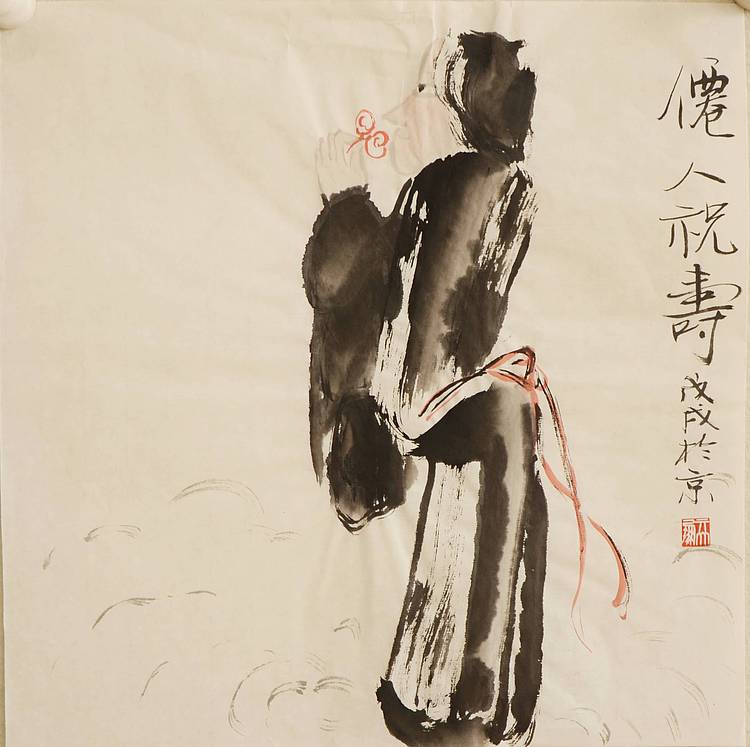 僊人祝壽 戊戌於京